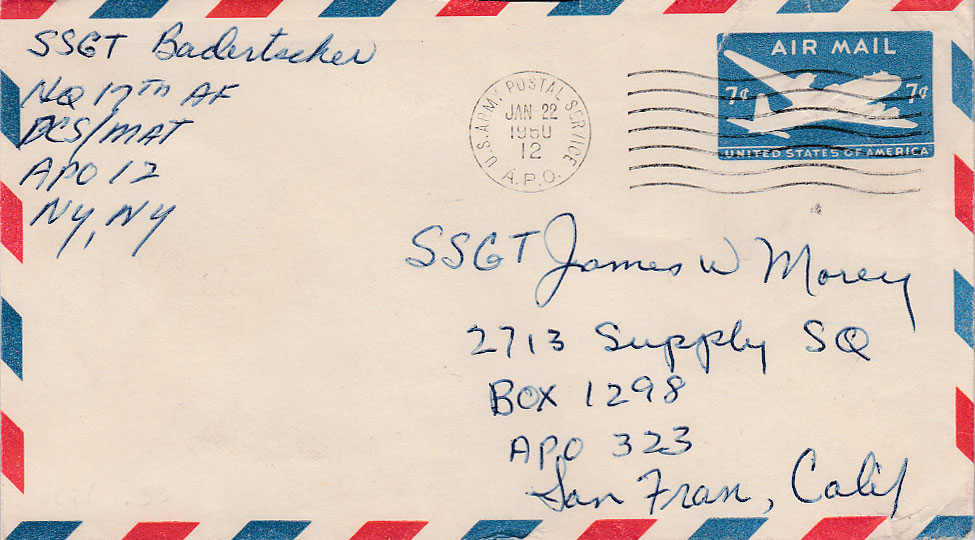 SSGT Badertscher
HQ 17TH AF
DCS/MAT
APO 12
NY, NY
U.S. ARMY POSTAL SERVICE
JAN 22
1960
12
A.P.O.
AIR MAIL
7¢ 7¢
UNITED STATES OF AMERICA
SSGT James W Morey
2713 Supply SQ
BOX 1298
APO 323
San Fran, Calif